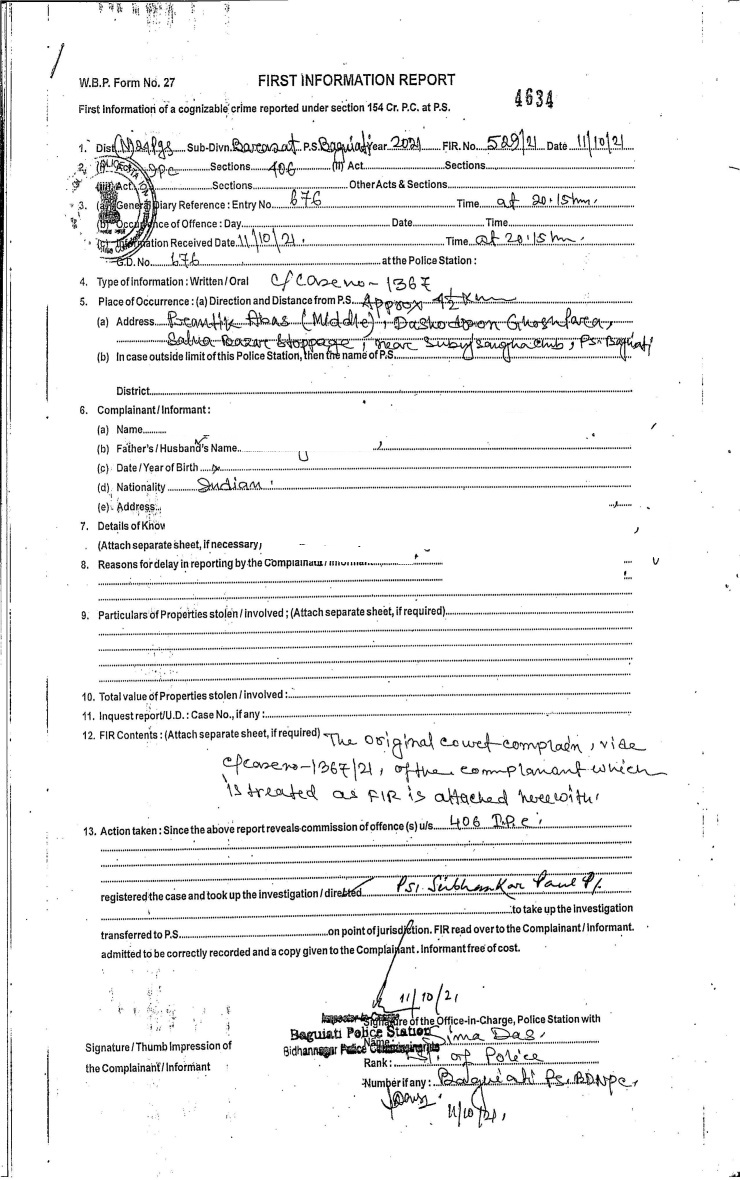 W.B.P. Form No. 27
FIRST INFORMATION REPORT
4634
First Information of a cognizable crime reported under section 154 Cr. P.C. at P.S.
1. Dist. (N) 24 Pgs Sub-Divn. Barasat P.S. Baguiati Year 2021 FIR. No. 529/21 Date 11/10/21
2. (i) Act IPC Sections 406 (ii) Act Sections
(iii) Act Sections Other Acts & Sections
3. (a) General Diary Reference : Entry No. 676 Time at 20.15 hr.
(b) Occurrence of Offence : Day Date Time
(c) Information Received Date 11/10/21. Time at 20.15 hr.
G.D. No. 676 at the Police Station :
4. Type of information : Written / Oral C/Case no - 1367
5. Place of Occurrence : (a) Direction and Distance from P.S. Approx 4½ Km
(a) Address Abas (Middle), Dashodron Ghoshpara,
Salua Bazar Stoppage, near Club, Ps. Baguiati
(b) In case outside limit of this Police Station, then the name of P.S.
District
6. Complainant / Informant :
(a) Name
(b) Father's / Husband's Name
(c) Date / Year of Birth
(d) Nationality Indian
(e) Address
7. Details of Know
(Attach separate sheet, if necessary)
8. Reasons for delay in reporting by the Complainant / Informant
9. Particulars of Properties stolen / involved ; (Attach separate sheet, if required)
10. Total value of Properties stolen / involved :
11. Inquest report/U.D. : Case No., if any :
12. FIR Contents : (Attach separate sheet, if required) The original court complain, vide
C/case no - 1367/21, of the complanant which
is treated as FIR is attached herewith.
13. Action taken : Since the above report reveals commission of offence (s) u/s 406 I.P.C.
registered the case and took up the investigation / directed PSI Subhankar Paul
to take up the investigation
transferred to P.S. on point of jurisdiction. FIR read over to the Complainant / Informant.
admitted to be correctly recorded and a copy given to the Complainant. Informant free of cost.
11/10/21
Inspector-in-Charge
Signature of the Office-in-Charge, Police Station with
Baguiati Police Station
Name : Sima Das,
Bidhannagar Police Commissionerate
Signature / Thumb Impression of
the Complainant / Informant
Rank : SI of Police
Number if any : Baguiati Ps. BDNPC,
11/10/21,